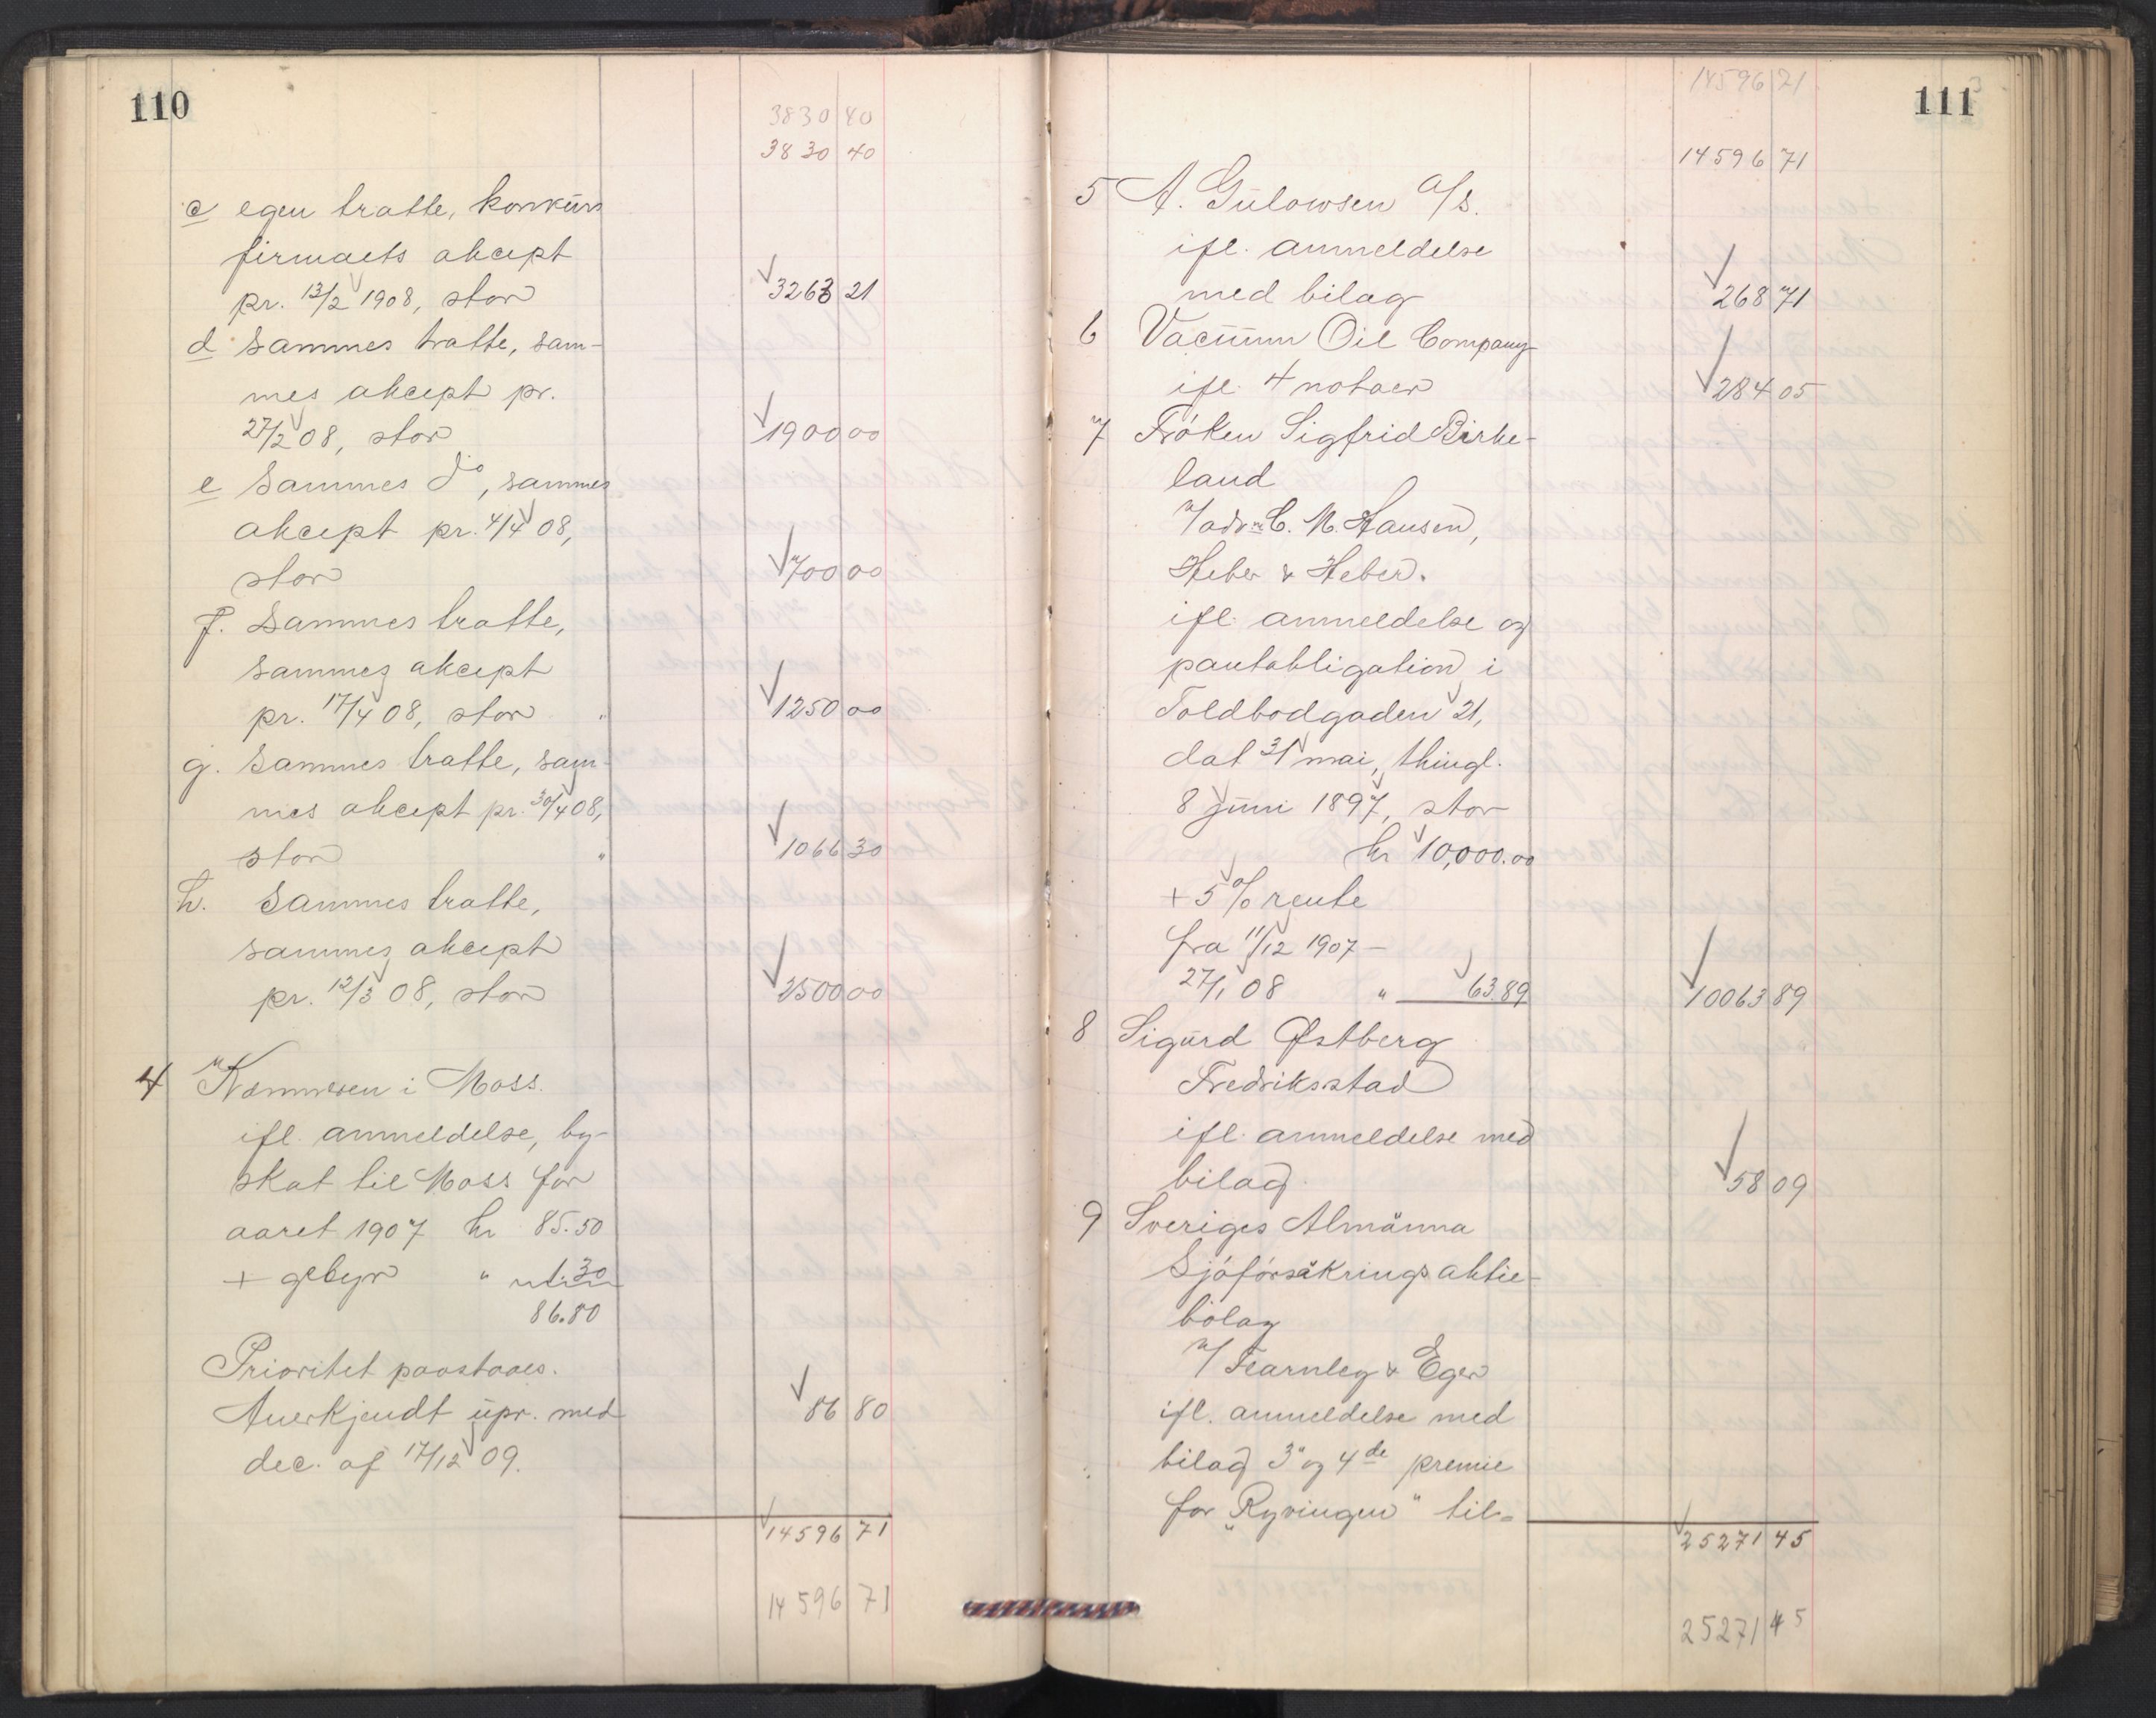 110
3830 40
3830 40
c egen tratte, konkurs
firmaets akcept
pr. 13/2 1908, stor 3263 21
d sammes tratte, sam-
mes akcept pr.
27/2 08, stor 1900 00
e sammes do, sammes
akcept pr. 4/4 08,
stor 700 00
f. sammes tratte,
sammes akcept
pr. 17/4 08, stor " 1250 00
g. sammes tratte, sam-
mes akcept pr. 30/4 08,
stor " 1066 30
h. sammes tratte,
sammes akcept
pr. 12/3 08, stor 2500 00
4 Kæmneren i Moss.
ifl. anmeldelse, by-
skat til Moss for
aaret 1907 kr 85.50
+ gebyr " 1.30
86.80
Prioritet paastaaes.
Anerkjendt upr. med 86 80
dec. af 17/12 09.
14596 71
14596 71
111
14596 71
14596 71
5 A. Gulowsen a/s.
ifl. anmeldelse
med bilag 268 71
6 Vacuum Oil Company
ifl. 4 notaer 284 05
7 Frøken Sigfrid Birke-
land
v/ adv. C. M. Hansen,
Heber & Heber.
ifl. anmeldelse og
pantobligation i
Toldbodgaden 21,
dat 31 mai, thingl.
8 juni 1897, stor
kr 10,000.00
+ 5 % rente
fra 11/12 1907 –
27/1 08 " 63.89 10063 89
8 Sigurd Østberg
Fredriksstad
ifl. anmeldelse med
bilag. 58 09
9 Sveriges Almänna
Sjöförsäkrings aktie-
bolag
v/ Fearnley & Eger
ifl. anmeldelse med
bilag 3" og 4de premie
for "Ryvingen" til-
25271 45
25271 45